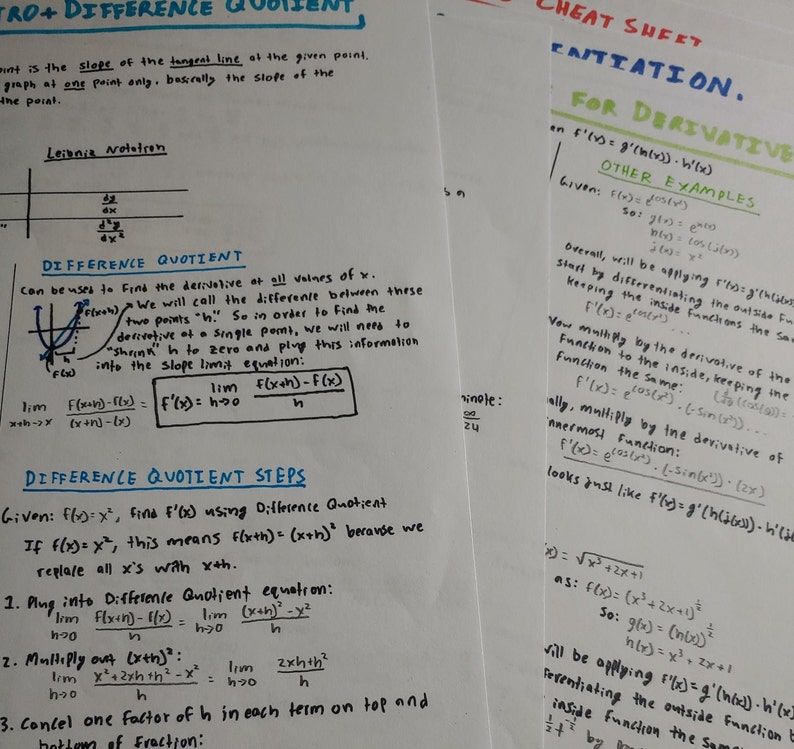 TRO + DIFFERENCE QUOTIENT
is the slope of the tangent line at the given point.
graph at one point only, basically the slope of the
the point.
Leibniz Notation
dy/dx
d²y/dx²
DIFFERENCE QUOTIENT
Can be used to find the derivative at all values of x.
We will call the difference between these
two points "h." So in order to find the
derivative at a single point, we will need to
"shrink" h to zero and plug this information
into the slope limit equation:
f(x+h)
h
f(x)
lim x+h->x f(x+h)-f(x)/(x+h)-(x) = f'(x) = lim h->0 f(x+h)-f(x)/h
DIFFERENCE QUOTIENT STEPS
Given: f(x)=x², find f'(x) using Difference Quotient
If f(x)=x², this means f(x+h)=(x+h)² because we
replace all x's with x+h.
1. Plug into Difference Quotient equation:
lim h->0 f(x+h)-f(x)/h = lim h->0 (x+h)²-x²/h
2. Multiply out (x+h)²:
lim h->0 x²+2xh+h²-x²/h = lim h->0 2xh+h²/h
3. Cancel one factor of h in each term on top and
bottom of fraction:
∞/24
CHEAT SHEET
ENTIATION.
FOR DERIVATIVE
f'(x)=g'(h(x))·h'(x)
OTHER EXAMPLES
Given: f(x)=e^cos(x²)
So: g(x)=e^h(x)
h(x)=cos(j(x))
j(x)=x²
Overall, will be applying f'(x)=g'(h(j(x)
start by differentiating the outside fu
keeping the inside functions the sa
f'(x)=e^cos(x²)...
Now multiply by the derivative of the
function to the inside, keeping the
function the same:
f'(x)=e^cos(x²)·(-sin(x²))...
ally, multiply by the derivative of
innermost function:
f'(x)=e^cos(x²)·(-sin(x²))·(2x)
looks just like f'(x)=g'(h(j(x)))·h'(j(
(x)=√x³+2x+1
as: f(x)=(x³+2x+1)^1/2
So: g(x)=(h(x))^1/2
h(x)=x³+2x+1
will be applying f'(x)=g'(h(x))·h'(x)
ferentiating the outside function
inside function the same